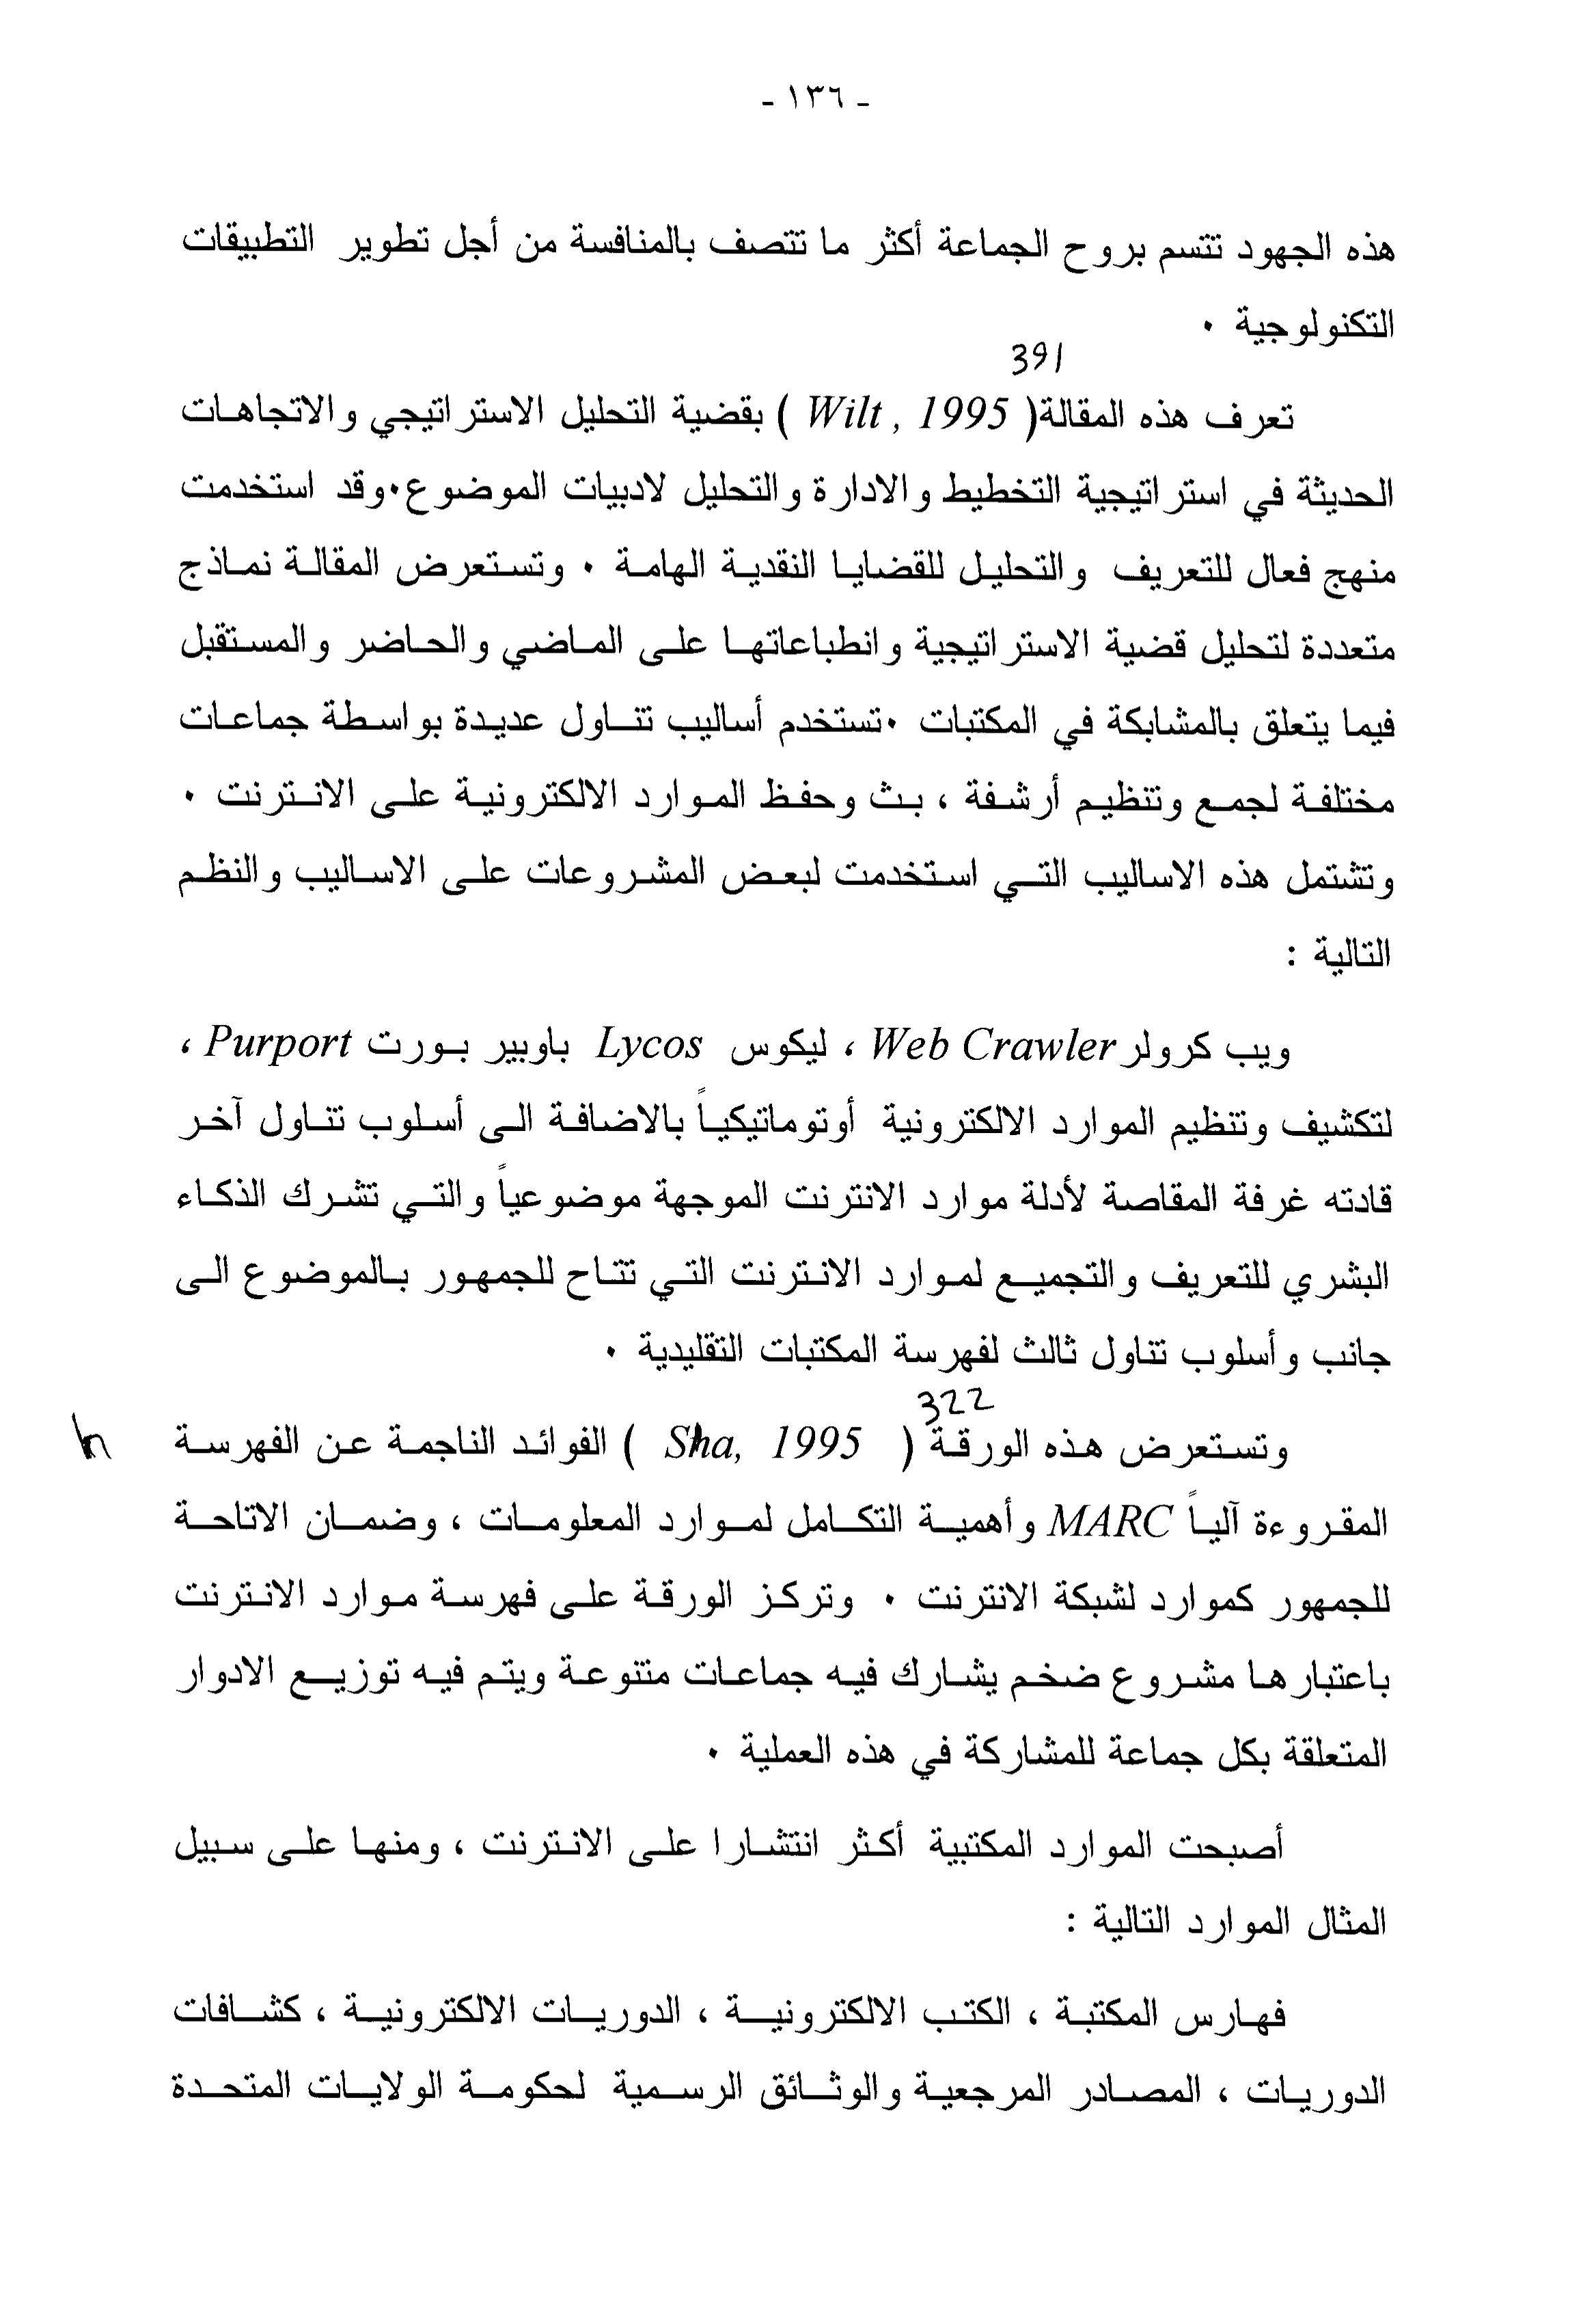 - ١٣٦ -
هذه الجهود تتسم بروح الجماعة أكثر ما تتصف بالمنافسة من أجل تطوير التطبيقات
التكنولوجية ٠
391
تعرف هذه المقالة( Wilt, 1995 ) بقضية التحليل الاستراتيجي والاتجاهات
الحديثة في استراتيجية التخطيط والادارة والتحليل لادبيات الموضوع٠وقد استخدمت
منهج فعال للتعريف والتحليل للقضايا النقدية الهامة ٠ وتستعرض المقالة نماذج
متعددة لتحليل قضية الاستراتيجية وانطباعاتها على الماضي والحاضر والمستقبل
فيما يتعلق بالمشابكة في المكتبات ٠تستخدم أساليب تناول عديدة بواسطة جماعات
مختلفة لجمع وتنظيم أرشفة ، بث وحفظ الموارد الالكترونية على الانترنت ٠
وتشتمل هذه الاساليب التي استخدمت لبعض المشروعات على الاساليب والنظم
التالية :
ويب كرولر Web Crawler ، ليكوس Lycos باوبير بورت Purport ،
لتكشيف وتنظيم الموارد الالكترونية أوتوماتيكياً بالاضافة الى أسلوب تناول آخر
قادته غرفة المقاصة لأدلة موارد الانترنت الموجهة موضوعياً والتي تشرك الذكاء
البشري للتعريف والتجميع لموارد الانترنت التي تتاح للجمهور بالموضوع الى
جانب وأسلوب تناول ثالث لفهرسة المكتبات التقليدية ٠
322
وتستعرض هذه الورقة ( Sha, 1995 ) الفوائد الناجمة عن الفهرسة
المقروءة آلياً MARC وأهمية التكامل لموارد المعلومات ، وضمان الاتاحة
للجمهور كموارد لشبكة الانترنت ٠ وتركز الورقة على فهرسة موارد الانترنت
باعتبارها مشروع ضخم يشارك فيه جماعات متنوعة ويتم فيه توزيع الادوار
المتعلقة بكل جماعة للمشاركة في هذه العملية ٠
أصبحت الموارد المكتبية أكثر انتشارا على الانترنت ، ومنها على سبيل
المثال الموارد التالية :
فهارس المكتبة ، الكتب الالكترونية ، الدوريات الالكترونية ، كشافات
الدوريات ، المصادر المرجعية والوثائق الرسمية لحكومة الولايات المتحدة